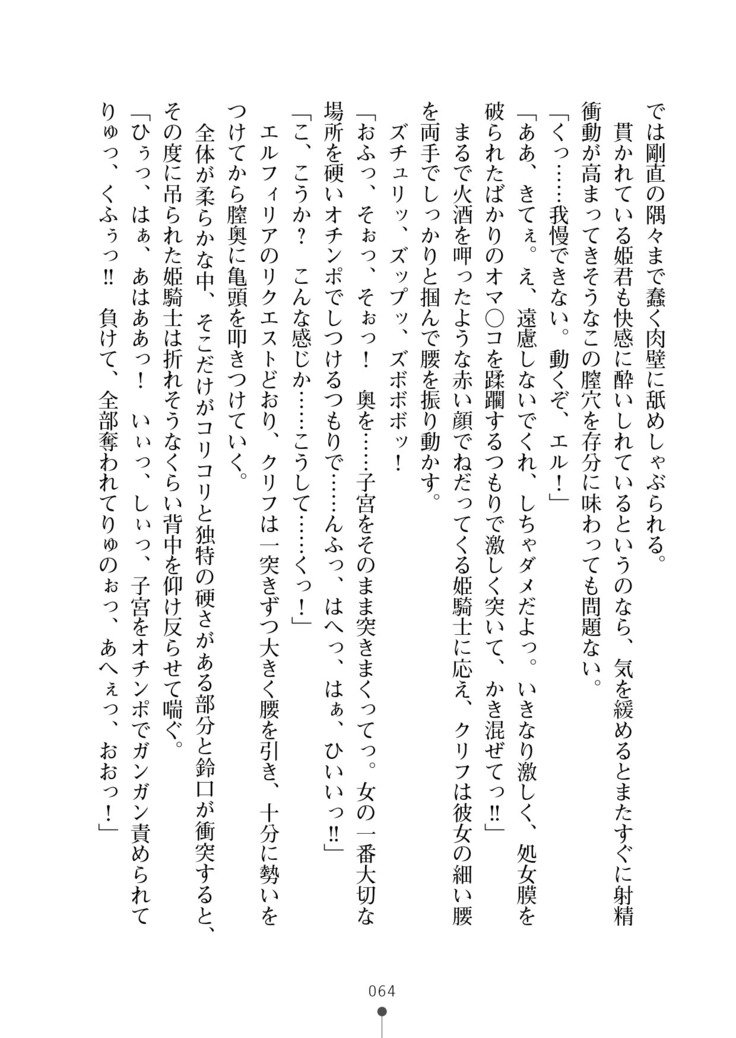 では剛直の隅々まで蠢く肉壁に舐めしゃぶられる。
貫かれている姫君も快感に酔いしれているというのなら、気を緩めるとまたすぐに射精
衝動が高まってきそうなこの膣穴を存分に味わっても問題ない。
「くっ……我慢できない。動くぞ、エル！」
「ああ、きてぇ。え、遠慮しないでくれ、しちゃダメだよっ。いきなり激しく、処女膜を
破られたばかりのオマ〇コを蹂躙するつもりで激しく突いて、かき混ぜてっ‼」
まるで火酒を呷ったような赤い顔でねだってくる姫騎士に応え、クリフは彼女の細い腰
を両手でしっかりと掴んで腰を振り動かす。
ズチュリッ、ズップッ、ズボボボッ！
「おふっ、そぉっ、そぉっ！　奥を……子宮をそのまま突きまくってっ。女の一番大切な
場所を硬いオチンポでしつけるつもりで……んふっ、はへっ、はぁ、ひいいっ‼」
「こ、こうか？　こんな感じか……こうして……くっ！」
エルフィリアのリクエストどおり、クリフは一突きずつ大きく腰を引き、十分に勢いを
つけてから膣奥に亀頭を叩きつけていく。
全体が柔らかな中、そこだけがコリコリと独特の硬さがある部分と鈴口が衝突すると、
その度に吊られた姫騎士は折れそうなくらい背中を仰け反らせて喘ぐ。
「ひぅっ、はぁ、あはああっ！　いぃっ、しぃっ、子宮をオチンポでガンガン責められて
りゅっ、くふぅっ‼　負けて、全部奪われてりゅのぉっ、あへぇっ、おおっ！」
064